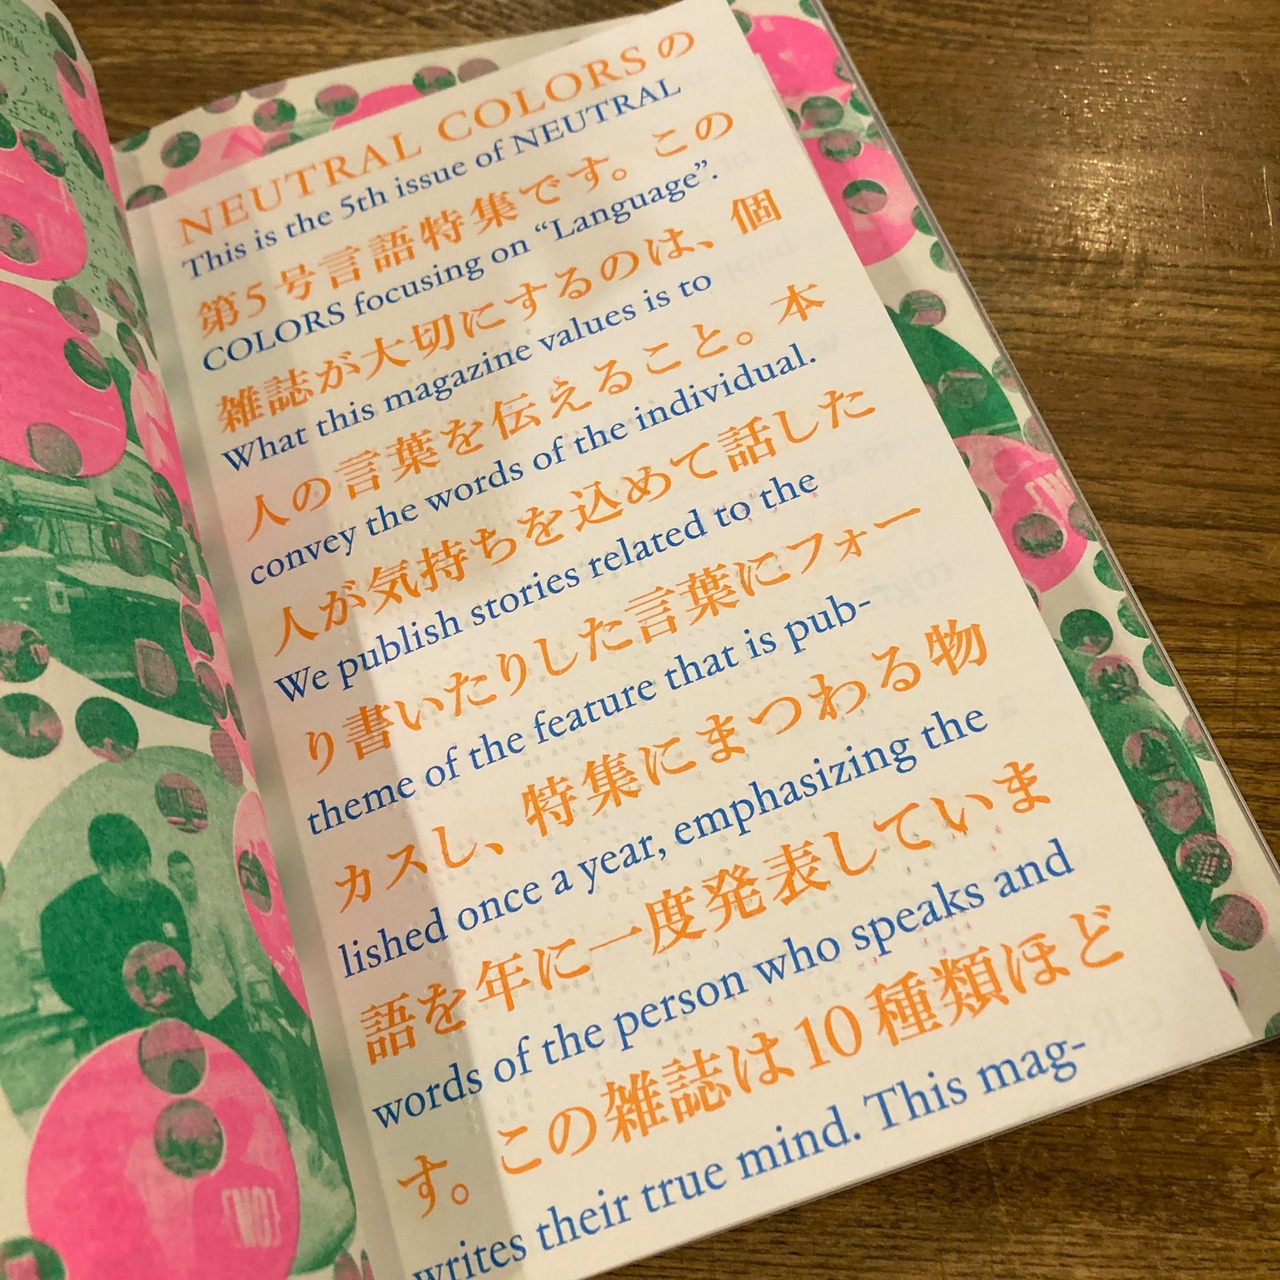 NEUTRAL COLORSの
This is the 5th issue of NEUTRAL
第5号言語特集です。この
COLORS focusing on “Language”.
雑誌が大切にするのは、個
What this magazine values is to
人の言葉を伝えること。本
convey the words of the individual.
人が気持ちを込めて話した
We publish stories related to the
り書いたりした言葉にフォー
theme of the feature that is pub-
カスし、特集にまつわる物
lished once a year, emphasizing the
語を年に一度発表していま
words of the person who speaks and
す。この雑誌は10種類ほど
writes their true mind. This mag-